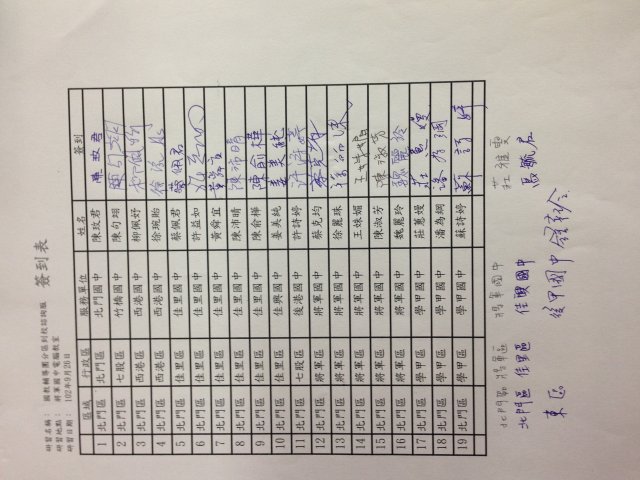 簽到表
研習名稱： 國教輔導團分區到校諮詢服
研習地點： 將軍國中電腦教室
研習日期： 102年9月26日
區域 行政區 服務單位 姓名 簽到
1 北門區 北門區 北門國中 陳玫君 陳玫君
2 北門區 七股區 竹橋國中 陳句翊
3 北門區 西港區 西港國中 柳佩妤
4 北門區 西港區 西港國中 徐琬貽
5 北門區 佳里區 佳里國中 蔡佩君 蔡佩君
6 北門區 佳里區 佳里國中 許益如
7 北門區 佳里區 佳里國中 黃舜宜
8 北門區 佳里區 佳里國中 陳沛晴 陳沛晴
9 北門區 佳里區 佳里國中 陳俞樺 陳俞樺
10 北門區 佳里區 佳興國中 姜美純 姜美純
11 北門區 七股區 後港國中 許詩婷 許詩婷
12 北門區 將軍區 將軍國中 蔡克均
13 北門區 將軍區 將軍國中 徐麗珠
14 北門區 將軍區 將軍國中 王姝媚
15 北門區 將軍區 將軍國中 陳淑芳 陳淑芳
16 北門區 將軍區 將軍國中 魏麗玲 魏麗玲
17 北門區 學甲區 學甲國中 莊蕙嫚 莊蕙嫚
18 北門區 學甲區 學甲國中 潘為綱 潘為綱
19 北門區 學甲區 學甲國中 蘇詩婷 蘇詩婷
北門區 將軍區 將軍國中 莊雅雯
北門區 佳里區 佳興國中 吳毓君
東區 後甲國中